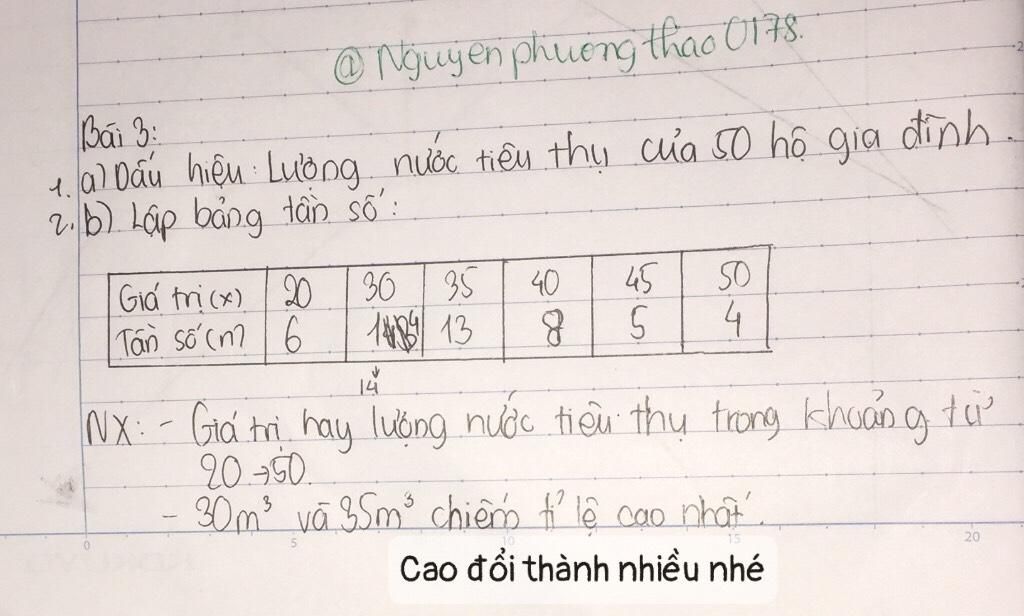 @ Nguyenphuongthao0178.
Bài 3:
1. a) Dấu hiệu: Lượng nước tiêu thụ của 50 hộ gia đình.
2. b) Lập bảng tần số:
Giá trị (x) 20 30 35 40 45 50
Tần số (n) 6 14 13 8 5 4
14
NX: - Giá trị hay lượng nước tiêu thụ trong khoảng từ
20 → 50.
- 30m³ và 35m³ chiếm tỉ lệ cao nhất.
0 5 10 15 20
Cao đổi thành nhiều nhé